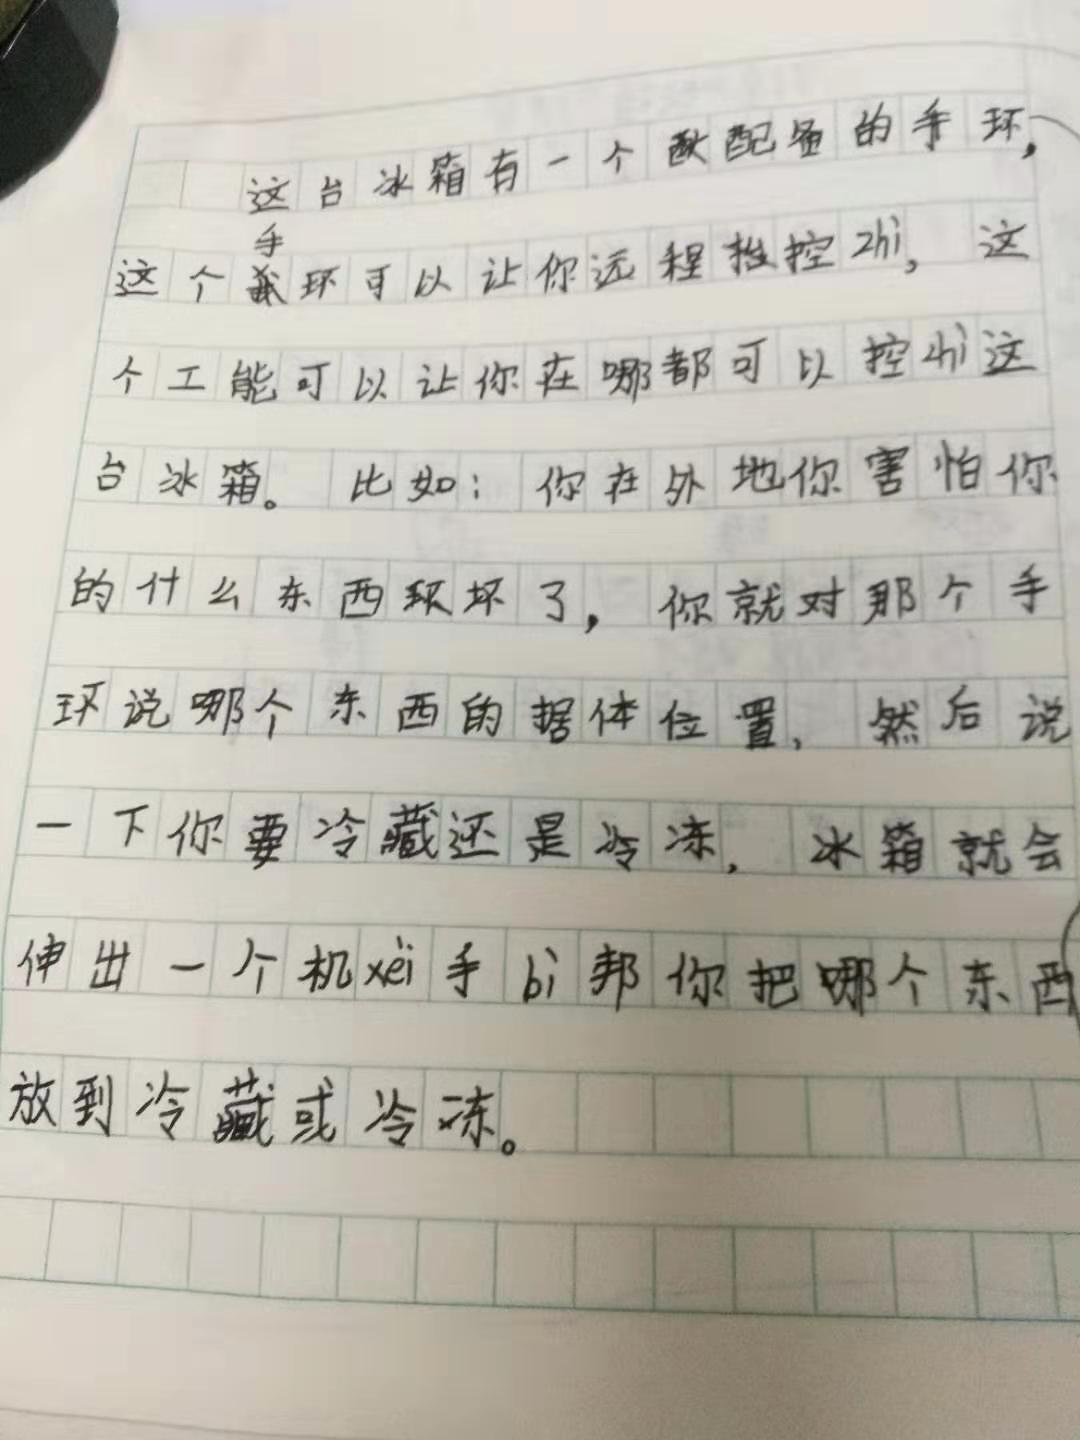 这台冰箱有一个配备的手环，
手
这个环可以让你远程控zhi，这
个工能可以让你在哪都可以控zhi这
台冰箱。比如：你在外地你害怕你
的什么东西环坏了，你就对那个手
环说哪个东西的据体位置，然后说
一下你要冷藏还是冷冻，冰箱就会
伸出一个机xèi手bì邦你把哪个东西
放到冷藏或冷冻。